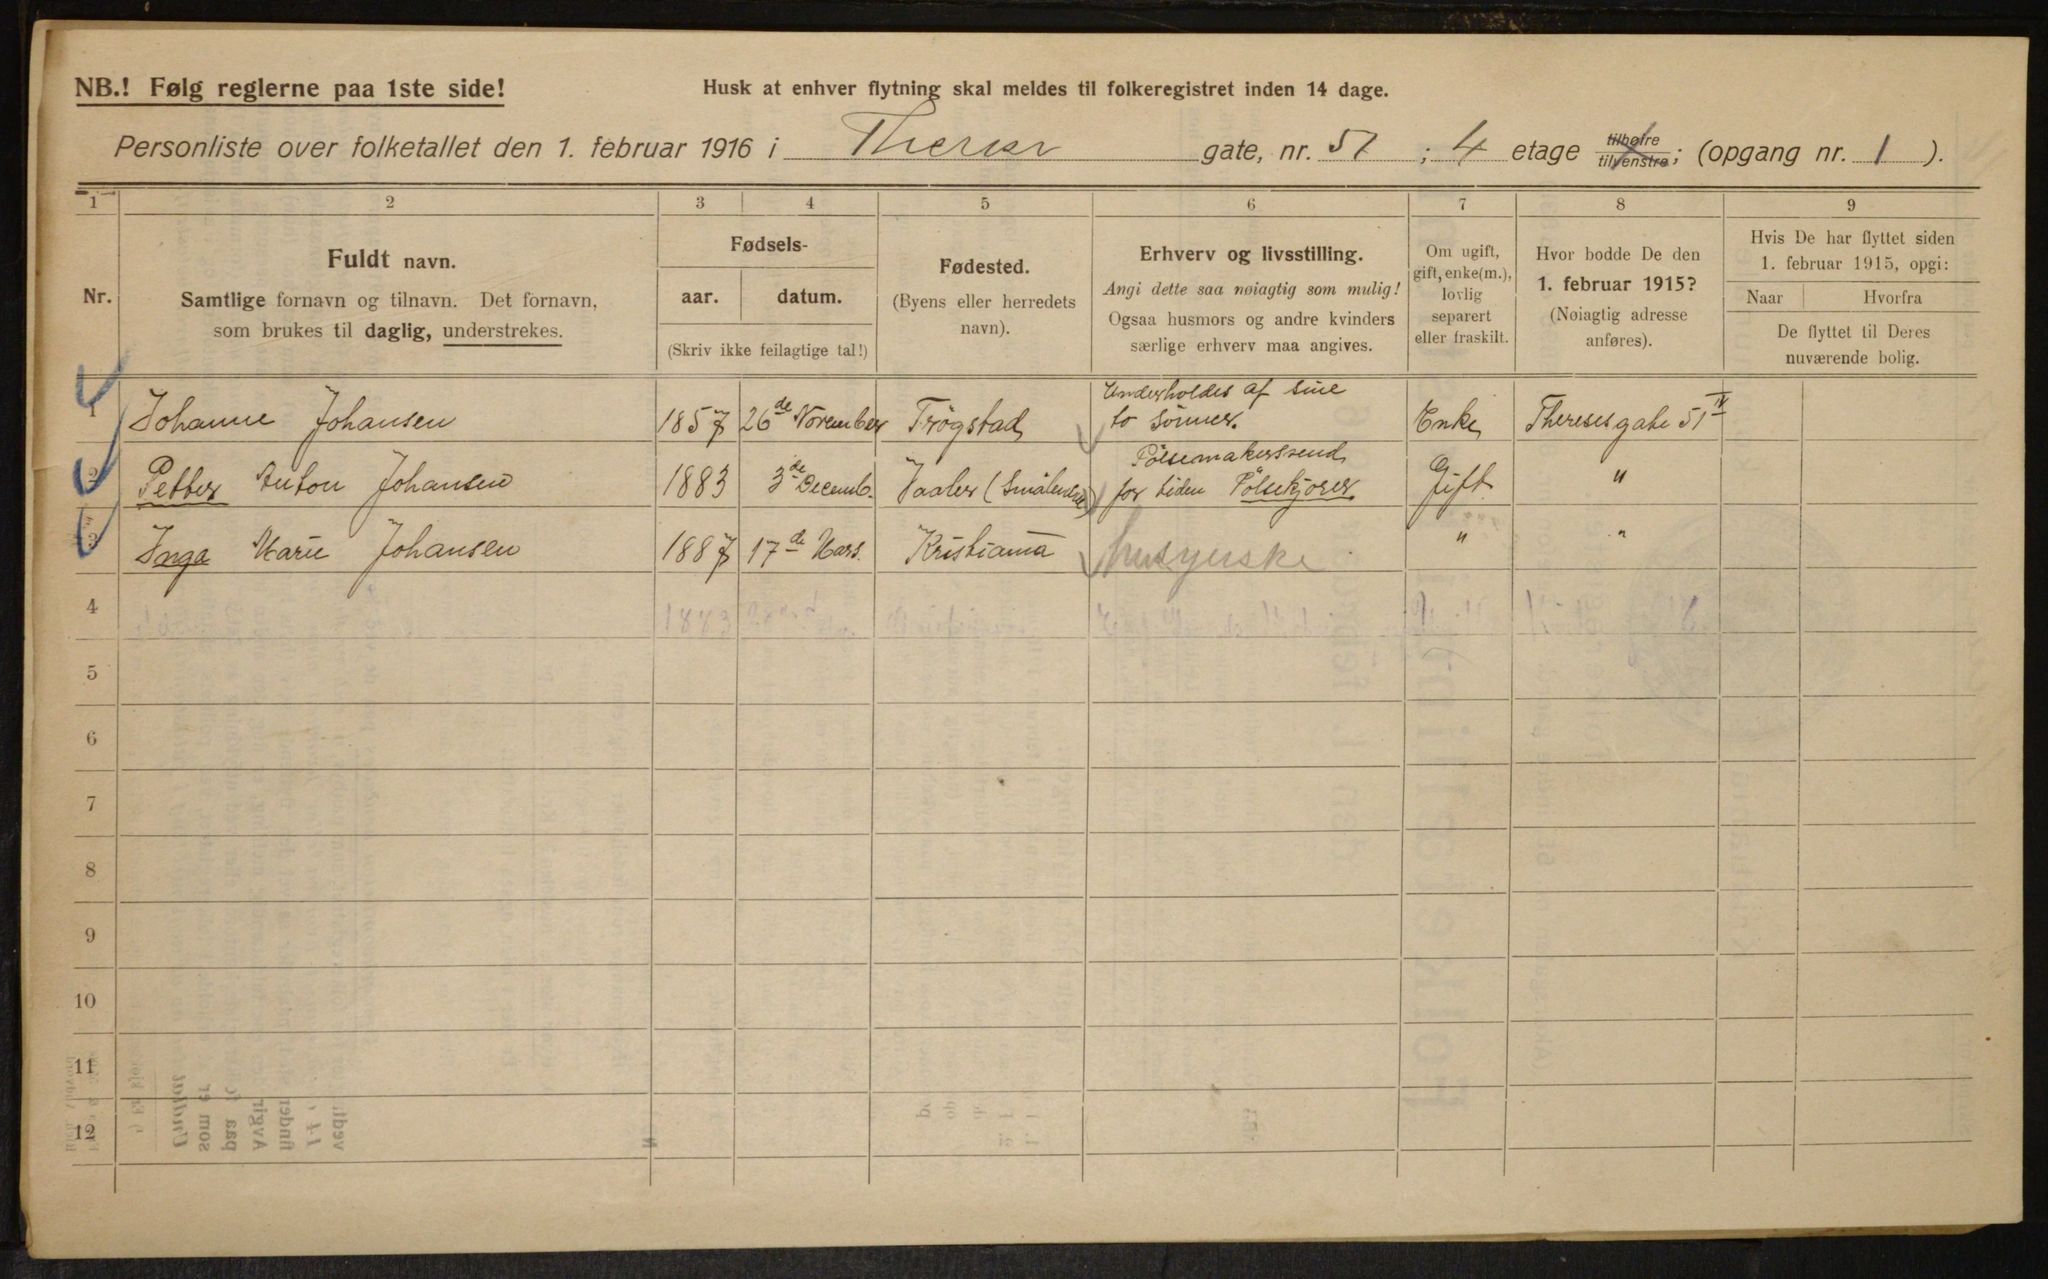 NB.! Følg reglerne paa 1ste side!
Husk at enhver flytning skal meldes til folkeregistret inden 14 dage.
Personliste over folketallet den 1. februar 1916 i Thereses gate, nr. 51 ; 4 etage tilhøire tilvenstre; (opgang nr. 1 ).
1 2 3 4 5 6 7 8 9
Nr.
Fuldt navn.
Samtlige fornavn og tilnavn. Det fornavn,
som brukes til daglig, understrekes.
Fødsels-
aar. datum.
(Skriv ikke feilagtige tal!)
Fødested.
(Byens eller herredets
navn).
Erhverv og livsstilling.
Angi dette saa nøiagtig som mulig!
Ogsaa husmors og andre kvinders
særlige erhverv maa angives.
Om ugift,
gift, enke(m.),
lovlig
separert
eller fraskilt.
Hvor bodde De den
1. februar 1915?
(Nøiagtig adresse
anføres).
Hvis De har flyttet siden
1. februar 1915, opgi:
Naar Hvorfra
De flyttet til Deres
nuværende bolig.
1 Johanne Johansen 1857 26de November Trøgstad Underholdes af sine to Sønner. Enke Theresesgate 51 IV
2 Petter Anton Johansen 1883 3de Decemb. Vaaler (Smålenene) Pølsemakersvend for tiden Pølsekjører Gift "
3 Inga Marie Johansen 1887 17de Mars. Kristiania husyerske " "
4
5
6
7
8
9
10
11
12